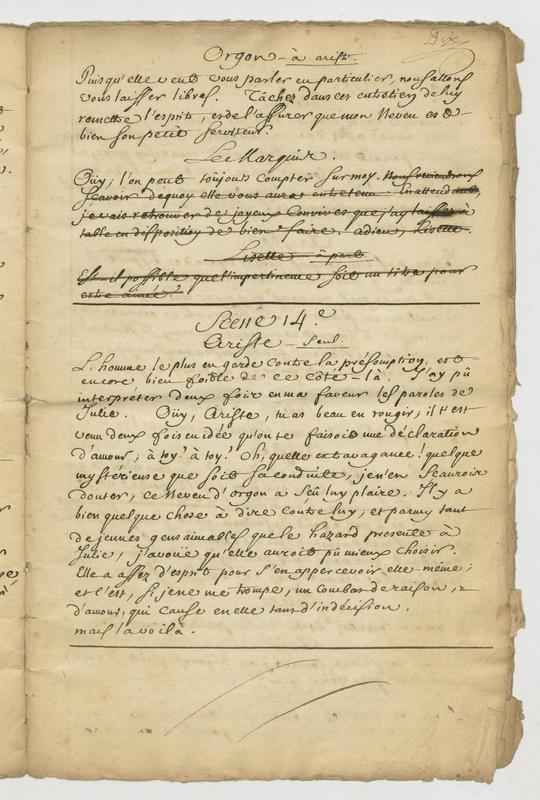 Dix
Orgon - à arist.
Puisqu'elle veut vous parler en particulier, nous allons
vous laisser libres. Tâchez dans cet entretien de luy
remettre l'esprit, et de l'assurer que mon Neveu est
bien son petit serviteur.
Le Marquis.
Oüy; l'on peut toujours compter sur moy. Nous reviendrons
sçavoir dequoy elle vous aura entretenu. En attendant,
je vais retrouver de joyeux Convives que j'ay laissés à
table en disposition de bien faire. adieu, Lisette.
Lisette - à part.
Est-il possible que l'impertinence soit un titre pour
estre aimé?
Scene 14.e
Ariste - seul.
L'homme le plus en garde contre la présomption, est
encore bien foible de ce côté-là. J'ay pû
interpréter deux fois en ma faveur les paroles de
Julie. Oüy, Ariste, tu as beau en rougir; il t'est
venu deux fois en idée qu'on te faisoit une déclaration
d'amour; à toy! à toy! Oh, quelle extravagance! quelque
mystérieuse que soit sa conduite, je n'en sçaurois
douter, ce Neveu d'orgon a sçû luy plaire. Il y a
bien quelque chose à dire contre luy; et parmy tant
de jeunes gens aimables que le hazard presente à
Julie, j'avoüe qu'elle auroit pû mieux choisir.
Elle a assez d'esprit pour s'en appercevoir elle-même;
et c'est, si je ne me trompe, un Combat de raison, &
d'amour, qui cause en elle tant d'indécision.
mais la voilà.